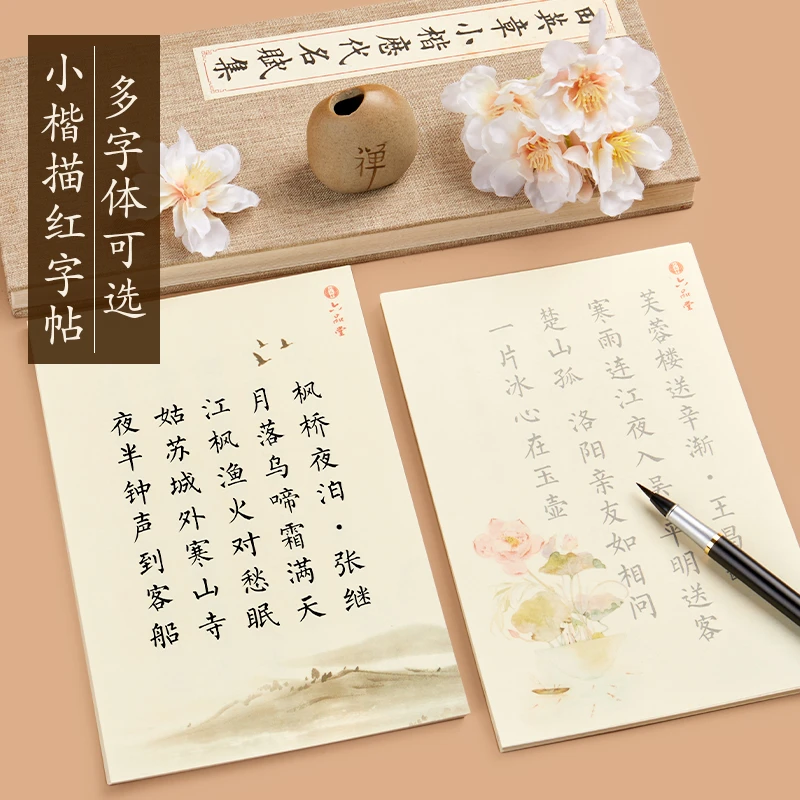 小楷描红字帖
多字体可选
田英章小楷歷代名賦集
禅
六品堂
枫桥夜泊·张继
月落乌啼霜满天
江枫渔火对愁眠
姑苏城外寒山寺
夜半钟声到客船
六品堂
芙蓉楼送辛渐·王昌
寒雨连江夜入吴 平明送客
楚山孤 洛阳亲友如相问
一片冰心在玉壶